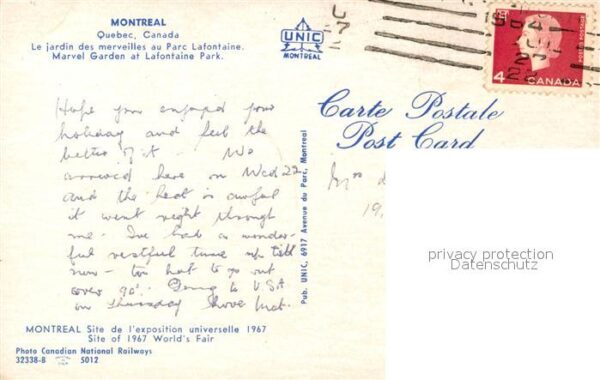 MONTREAL
Quebec, Canada
Le jardin des merveilles au Parc Lafontaine.
Marvel Garden at Lafontaine Park.
UNIC
MONTREAL
4
CANADA
POSTES POSTAGE
Carte Postale
Post Card
Hope you enjoyed your
holiday and feel the
better of it. We
arrived here on Wed 22
and the heat is awful
it went right through
me. I've had a wonder-
ful restful time up till
now - too hot to go out
over 90°. Going to USA
on Thursday
Pub. UNIC, 6917 Avenue du Parc, Montreal
Mrs
19,
privacy protection
Datenschutz
MONTREAL Site de l'exposition universelle 1967
Site of 1967 World's Fair
Photo Canadian National Railways
32338-B 5012